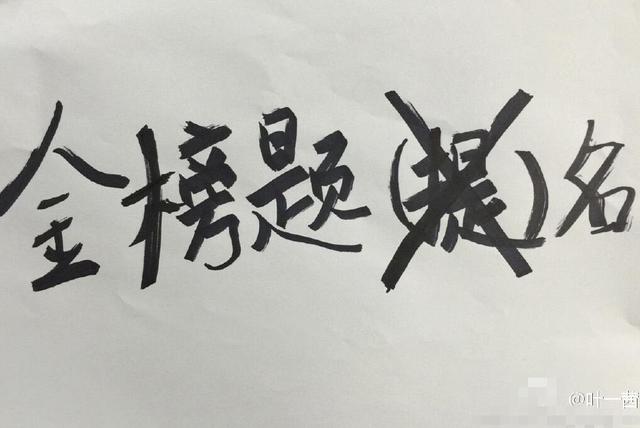 金榜题(提)名
@叶一茜